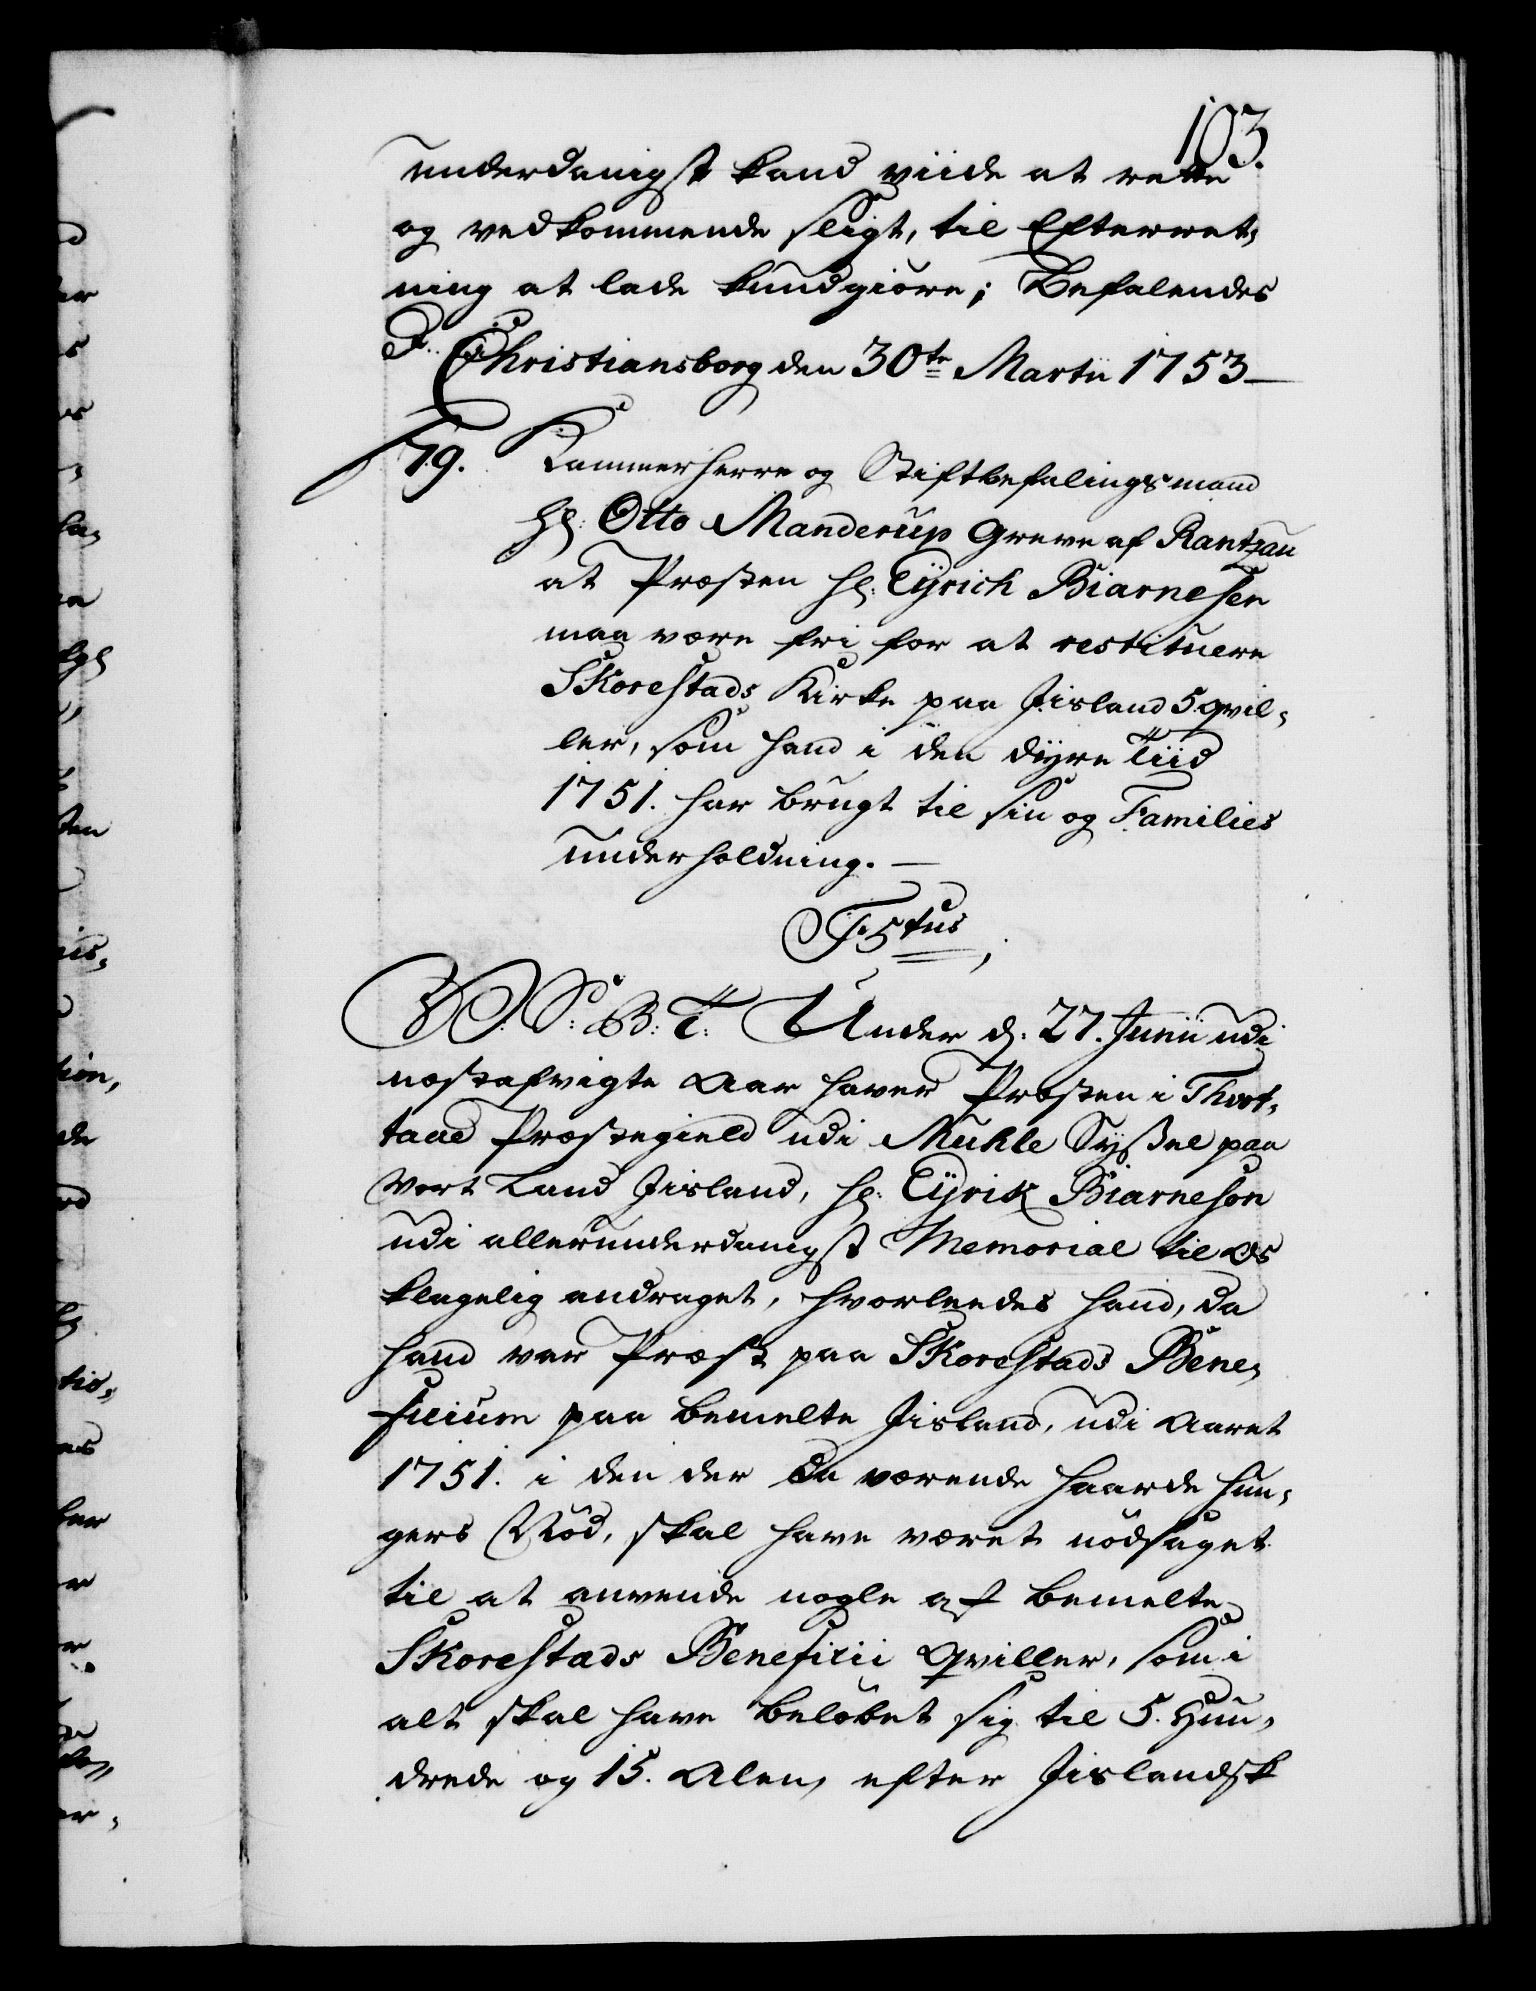 103.
underdanigst kand viide at rette
og vedkommende sligt, til Efterret,
ning at lade kundgiöre; Befalendes
Christiansborg den 30te Martii 1753 —
79. Kammerherre og Stiftbefalingsmand
Hr: Otto Manderup Greve af Rantzau
at Præsten Hr: Eyrich Biarnesen
maa være fri for at restituere
Skorestads Kirke paa Jisland 5 qvil,
ler, som hand i den dyre Tiid
1751. har brugt til sin og Families
underholdning. —
F 5tus
Under d: 27. Junii udi
næstafvigte Aar haver Præsten i
taad Præstegield udi Muhle Syssel paa
Vort Land Jisland, Hr: Eyrik Biarneson
udi allerunderdanigst Memorial til Os
klagelig andraget, hvorleedes hand, da
hand var Præst paa Skorestads Bene,
ficium paa bemelte Jisland, udi Aaret
1751. i den der da værende haarde Hun,
gers Nöd, skal have været nödsaget
til at anvende nogle af bemelte
Skorestads Beneficii Qviller, som i
alt skal have belöbet sig til 5. Hun,
drede og 15. Alen, efter Jislandsk